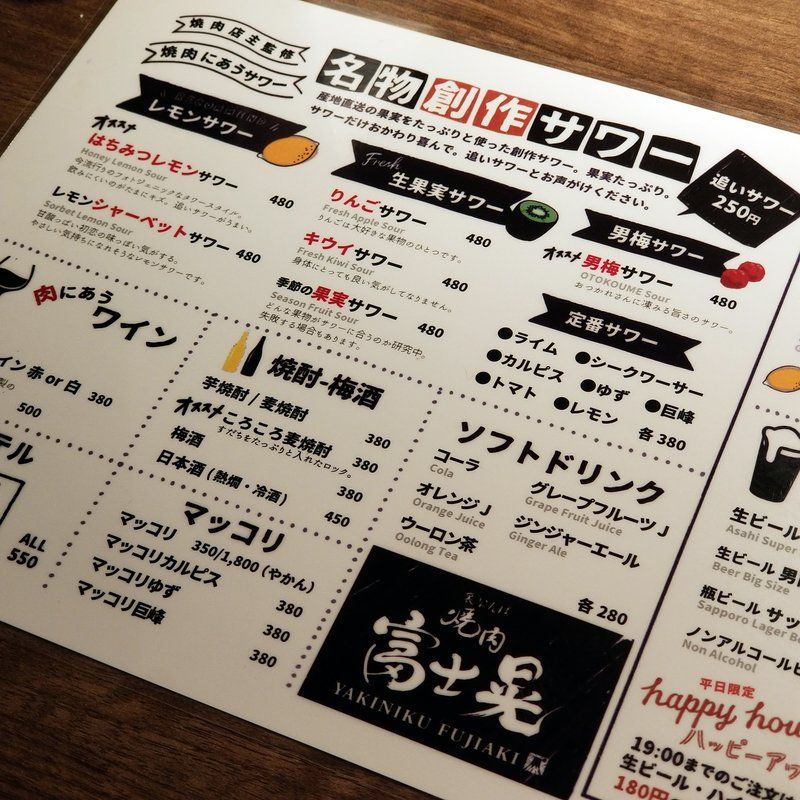 焼肉店主監修
焼肉にあうサワー
名物創作サワー
産地直送の果実をたっぷりと使った創作サワー。果実たっぷり。
サワーだけおかわり喜んで。追いサワーとお声がけください。
追いサワー
250円
レモンサワー
オススメ
はちみつレモンサワー 480
Honey Lemon Sour
今流行りのフォトジェニックなサワースタイル。
飲みにくいのがたまにキズ。追いサワーがうまい。
レモンシャーベットサワー 480
Sorbet Lemon Sour
甘酸っぱい初恋の味っぽい気がする。
やさしい気持ちになれそうなレモンサワーです。
Fresh
生果実サワー
りんごサワー 480
Fresh Apple Sour
りんごは大好きな果物のひとつです。
キウイサワー 480
Fresh Kiwi Sour
身体にとっても良い気がしてなりません。
季節の果実サワー 480
Season Fruit Sour
どんな果物がサワーに合うのか研究中。
失敗する場合もあります。
男梅サワー
オススメ 男梅サワー 480
OTOKOUME Sour
おつかれさんに凍みる旨さのサワー。
定番サワー
●ライム ●シークワーサー
●カルピス ●ゆず ●巨峰
●トマト ●レモン 各380
肉にあう
ワイン
イン 赤 or 白 380
製の
500
テル
ALL
550
焼酎・梅酒
芋焼酎 / 麦焼酎 380
オススメ ころころ麦焼酎 380
すだちをたっぷりと入れたロック。
梅酒 380
日本酒（熱燗・冷酒） 450
マッコリ
マッコリ 350/1,800（やかん）
マッコリカルピス 380
マッコリゆず 380
マッコリ巨峰 380
ソフトドリンク
コーラ
Cola
グレープフルーツJ
Grape Fruit Juice
オレンジJ
Orange Juice
ジンジャーエール
Ginger Ale
ウーロン茶
Oolong Tea
各280
焼肉
富士晃
YAKINIKU FUJIAKI
生ビール
Asahi Super
生ビール 男
Beer Big Size
瓶ビール サッ
Sapporo Lager Be
ノンアルコールビ
Non Alcohol
平日限定
happy hou
ハッピーアワ
19:00までのご注文は
生ビール・ハイ
180円